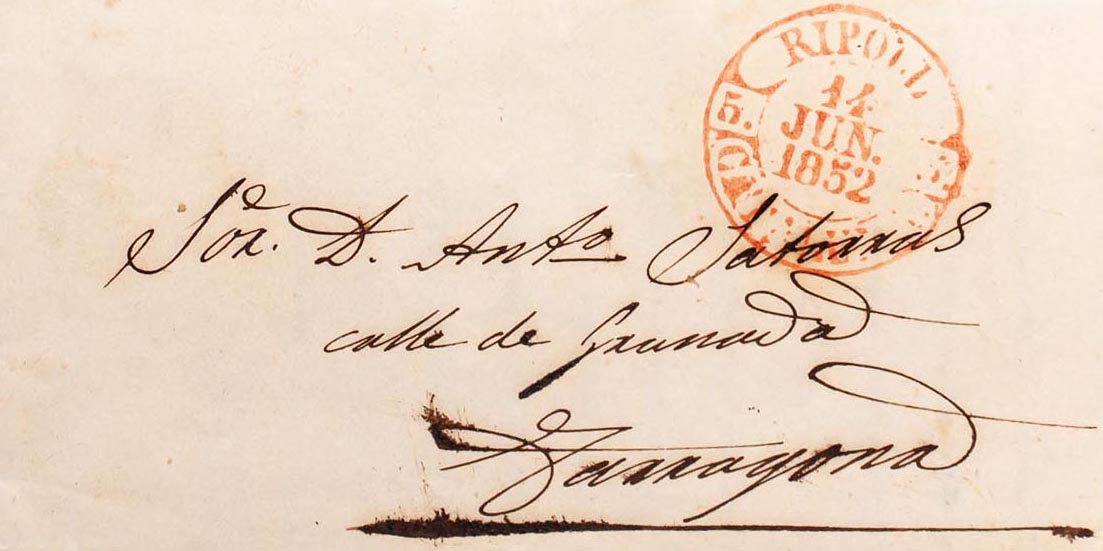 RIPOLL
14
JUN.
1852
5.
Sor. D. Anto. Satorras
calle de Granada
Tarragona